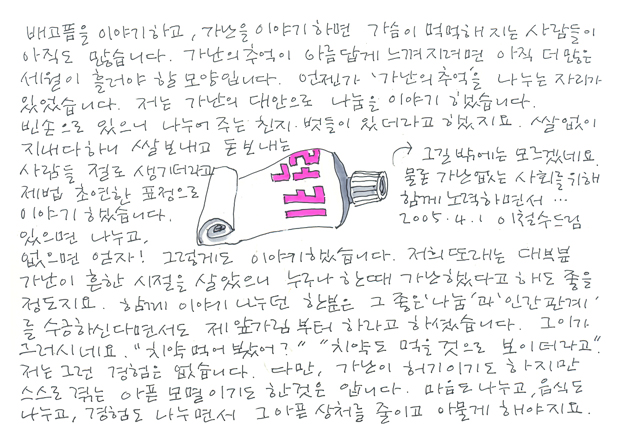 배고픔을 이야기하고, 가난을 이야기하면 가슴이 먹먹해지는 사람들이
아직도 많습니다. 가난의 추억이 아름답게 느껴지려면 아직 더 많은
세월이 흘러야 할 모양입니다. 언젠가 '가난의 추억'을 나누는 자리가
있었습니다. 저는 가난의 대안으로 나눔을 이야기 했습니다.
빈손으로 있으니 나누어 주는 친지. 벗들이 있더라고 했지요. 쌀 없이
지내다하니 쌀 보내고 돈 보내는
사람들 절로 생기더라고
제법 초연한 표정으로
이야기 했습니다.
있으면 나누고,
없으면 얻자! 그렇게도 이야기했습니다. 저희 또래는 대부분
가난이 흔한 시절을 살았으니 누구나 한때 가난했다고 해도 좋을
정도지요. 함께 이야기 나누던 한분은 그 좋은 '나눔'과 '인간관계'
를 수긍하신다면서도 제 앞가림부터 하라고 하셨습니다. 그이가
그러시네요. "치약 먹어 봤어?" "치약도 먹을 것으로 보이더라고".
저는 그런 경험은 없습니다. 다만, 가난이 허기이기도 하지만
스스로 겪는 아픈 모멸이기도 한것은 압니다. 마음도 나누고, 음식도
나누고, 경험도 나누면서 그 아픈 상처를 줄이고 아물게 해야지요.
그길 밖에는 모르겠네요.
물론 가난 없는 사회를 위해
함께 노력하면서 …
2005.4.1 이철수드림
럭키